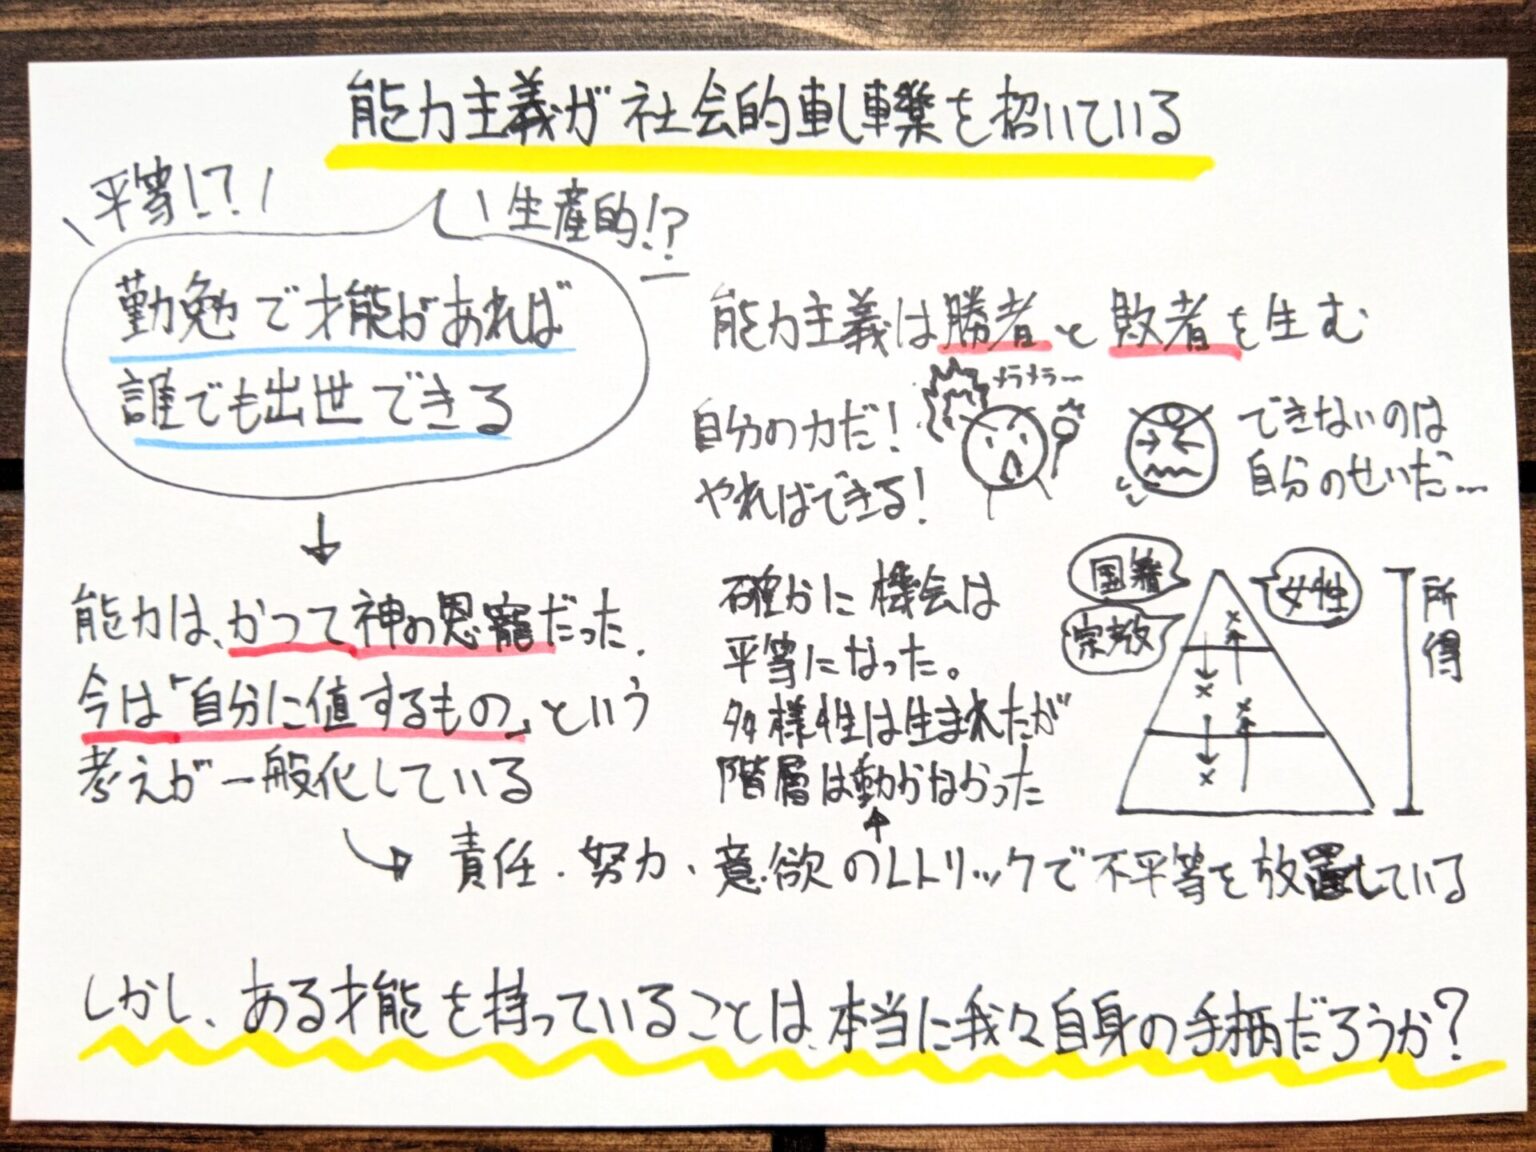 能力主義が社会的軋轢を招いている
平等!?
生産的!?
勤勉で才能があれば
誰でも出世できる
能力は、かつて神の恩寵だった、
今は「自分に値するもの」という
考えが一般化している
能力主義は勝者と敗者を生む
自分の力だ!
やればできる!
メラメラ〜
できないのは
自分のせいだ…
確かに機会は
平等になった。
多様性は生まれたが
階層は動かなかった
国籍
宗教
女性
所得
責任・努力・意欲のレトリックで不平等を放置している
しかし、ある才能を持っていることは、本当に我々自身の手柄だろうか?